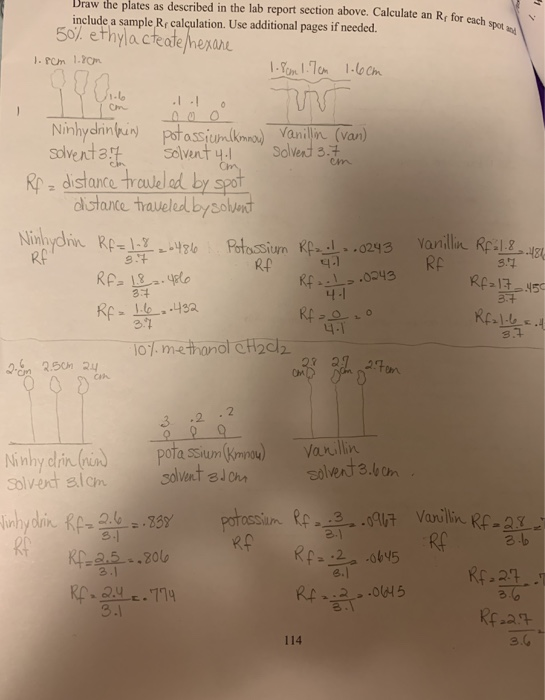 Draw the plates as described in the lab report section above. Calculate an Rf for each spot and
include a sample Rf calculation. Use additional pages if needed.
50% ethylacteate/hexane
1.8cm 1.8cm
1.6 cm
.1 .1 0
1.8cm 1.7cm 1.6cm
Ninhydrin(nin) potassium(kmno4) vanillin (van)
solvent 3.7 cm solvent 4.1 cm solvent 3.7 cm
Rf = distance traveled by spot
distance traveled by solvent
Ninhydrin Rf = 1.8 = .486 Potassium Rf = .1 = .0243 vanillin Rf = 1.8 = .486
Rf 3.7 Rf 4.1 Rf 3.7
Rf = 1.8 = .486 Rf = .1 = .0243 Rf = 1.7 = .45
3.7 4.1 3.7
Rf = 1.6 = .432 Rf = 0 = 0 Rf = 1.6 = .4
3.7 4.1 3.7
10% methanol CH2Cl2
2.6 cm 2.5cm 2.4 cm
.3 .2 .2
2.8 cm 2.7 cm 2.7cm
Ninhydrin(nin) potassium(kmno4) vanillin
solvent 3.1cm solvent 3.1cm solvent 3.6cm.
Ninhydrin Rf = 2.6 = .838 potassium Rf = .3 = .0967 Vanillin Rf = 2.8 =
Rf 3.1 Rf 3.1 Rf 3.6
Rf = 2.5 = .806 Rf = .2 = .0645 Rf = 2.7 = .7
3.1 3.1 3.6
Rf = 2.4 = .774 Rf = .2 = .0645 Rf = 2.7 =
3.1 3.1 3.6
114